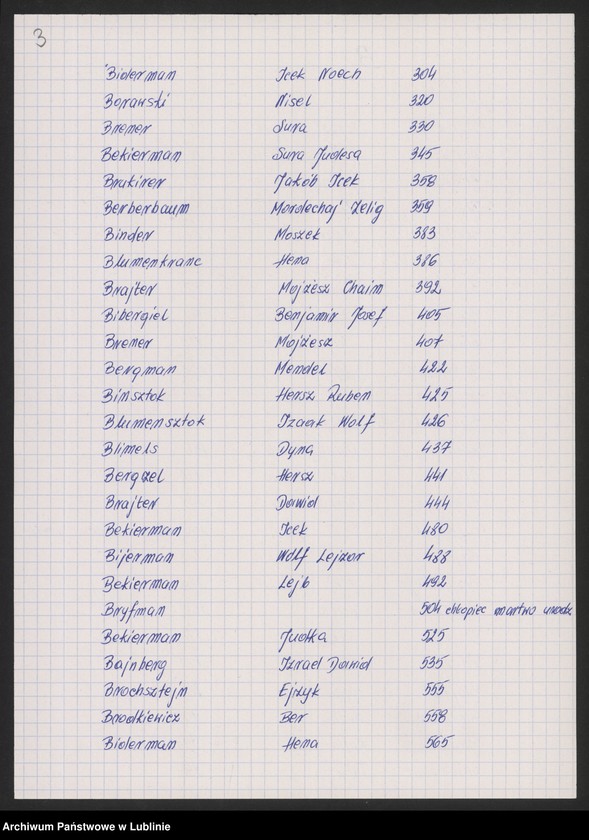 3
Biderman Icek Noech 304
Borawski Nisel 320
Bremer Sura 330
Bekierman Sura Judesa 345
Brukirer Jakób Icek 358
Berberbaum Mordechaj Zelig 359
Binder Moszek 383
Blumenkranc Hena 386
Brajter Mojżesz Chaim 392
Bibergiel Benjamin Josef 405
Bremer Mojżesz 407
Bergman Mendel 422
Binsztok Hersz Ruben 425
Blumensztok Izaak Wolf 426
Blimels Dyna 437
Bergzel Hersz 441
Brajter Dawid 444
Bekierman Icek 480
Bijerman Wolf Lejzor 488
Bekierman Lejb 492
Bryfman 504 chłopiec martwo urodz
Bekierman Judka 525
Bajnberg Izrael Dawid 535
Brochsztejn Ejzyk 555
Brodkiewicz Ber 558
Biderman Hena 565
Archiwum Państwowe w Lublinie